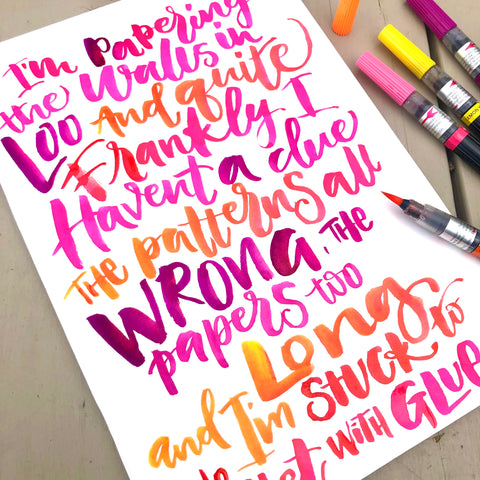 I'm Papering
the Walls in
Loo And quite
Frankly I
Havent a clue
The patterns all
WRONG, THE
papers too
Long
and I'm Stuck to
WITH GLUE